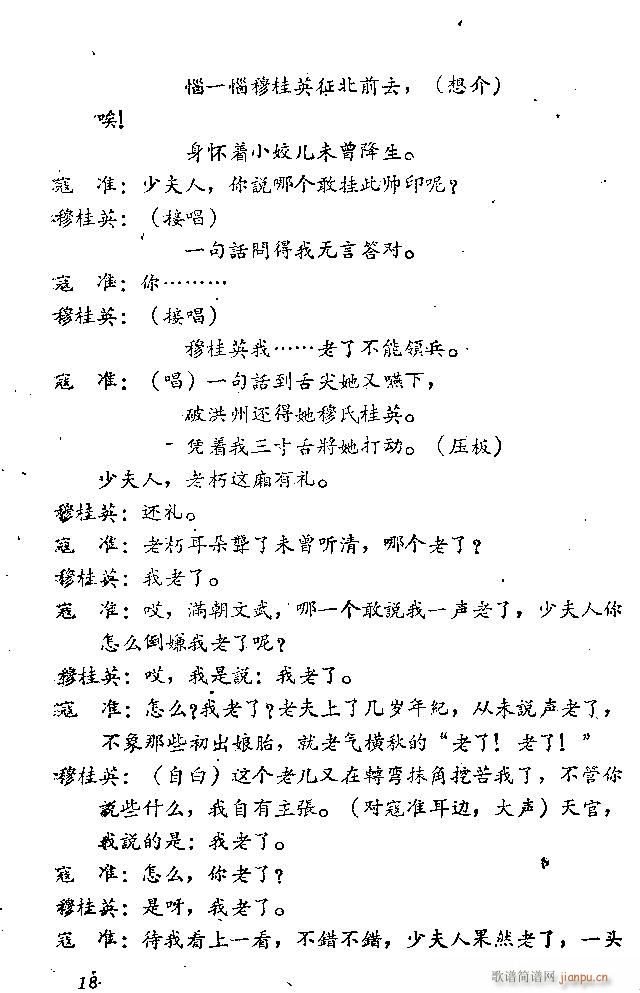 惱一惱穆桂英征北前去，（想介）
唉！
身怀着小姣儿未曾降生。
寇　准：少夫人，你說哪个敢挂此帅印呢？
穆桂英：（接唱）
一句話問得我无言答对。
寇　准：你………
穆桂英：（接唱）
穆桂英我……老了不能領兵。
寇　准：（唱）一句話到舌尖她又嚥下，
破洪州还得她穆氏桂英。
凭着我三寸舌將她打动。（压板）
少夫人，老朽这廂有礼。
穆桂英：还礼。
寇　准：老朽耳朵聾了未曾听清，哪个老了？
穆桂英：我老了。
寇　准：哎，滿朝文武，哪一个敢說我一声老了，少夫人你
怎么倒嫌我老了呢？
穆桂英：哎，我是說：我老了。
寇　准：怎么？我老了？老夫上了几岁年紀，从未說声老了，
不象那些初出娘胎，就老气横秋的“老了！老了！”
穆桂英：（自白）这个老儿又在轉弯抹角挖苦我了，不管你
說些什么，我自有主張。（对寇准耳边，大声）天官，
我說的是：我老了。
寇　准：怎么，你老了？
穆桂英：是呀，我老了。
寇　准：待我看上一看，不錯不錯，少夫人果然老了，一头
18
歌谱简谱网
jianpu.cn